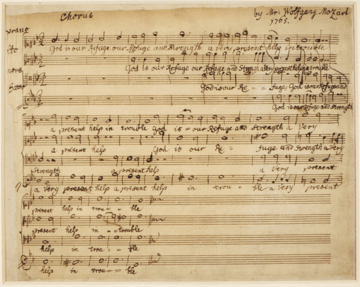 Chorus
by Mr. Wolfgang Mozart
1765.
God is our Refuge our Refuge and Strength a very present help in trouble
God is our Refuge our Refuge and Strength a very present help in
God is our Re - - fuge, God is our Refuge and
God is our Refuge and Strength
a present help in trouble God is our Refuge and Strength a Very
a present help God is our Re - fuge and Strength a Very
Strength present help a very present
a very present help a present help in trou - ble a Very present
present help in trou - - ble
present help in - trouble
help in trou - - ble
help in trou - - ble